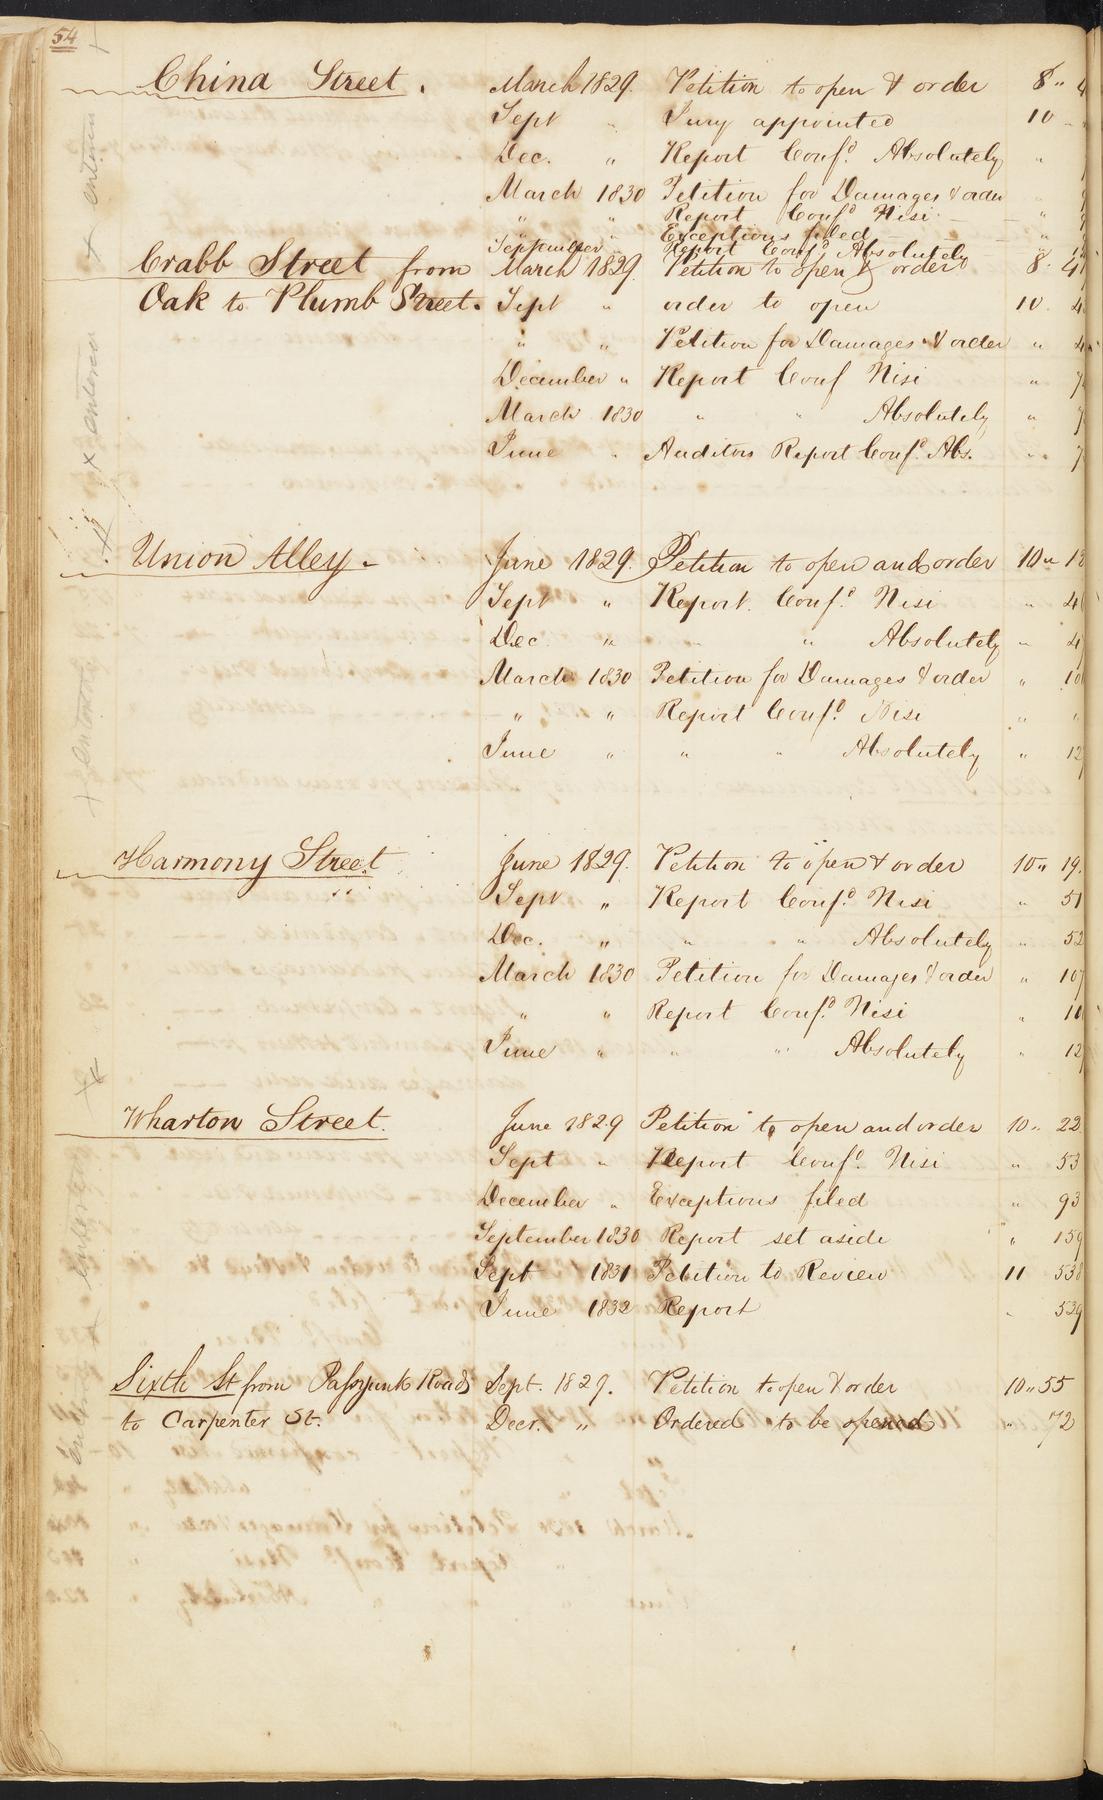 54
China Street. March 1829. Petition to open & order 8 „ 4
Sept „ Jury appointed 10
Dec. „ Report Conf.d Absolutely „
March 1830 Petition for Damages & order
„ „ Report Conf.d Nisi „
Exceptions filed „
September „ Report Conf.d Absolutely „
Crabb Street from March 1829. Petition to open & order 8. 4
Oak to Plumb Street. Sept „ order to open 10 4
„ „ Petition for Damages & order „ 4
December „ Report Conf Nisi „ 7
March 1830 „ „ Absolutely „ 7
June „ Auditors Report Conf.d Abs. „ 7
Union Alley. June 1829. Petition to open and order 10 „ 1
Sept „ Report Conf.d Nisi „ 4
Dec „ „ „ Absolutely „ 4
March 1830 Petition for Damages & order „ 10
„ „ Report Conf.d Nisi „ „
June „ „ „ Absolutely „ 12
Harmony Street June 1829. Petition to open & order 10 „ 19.
Sept „ Report Conf.d Nisi „ 51
Dec. „ „ „ Absolutely „ 52
March 1830 Petition for Damages & order „ 107
„ „ Report Conf.d Nisi „ 11
June „ „ „ Absolutely „ 12
Wharton Street. June 1829 Petition to open and order 10 „ 22
Sept „ Report Conf.d Nisi „ 53
December „ Exceptions filed „ 93
September 1830 Report set aside „ 159
Sept 1831 Petition to Review 11 538
June 1832 Report „ 539
Sixth St from Passyunk Road Sept. 1829. Petition to open & order 10 „ 55
to Carpenter St. Decr. „ Ordered to be opened „ 72
x entered
x entered
x entered